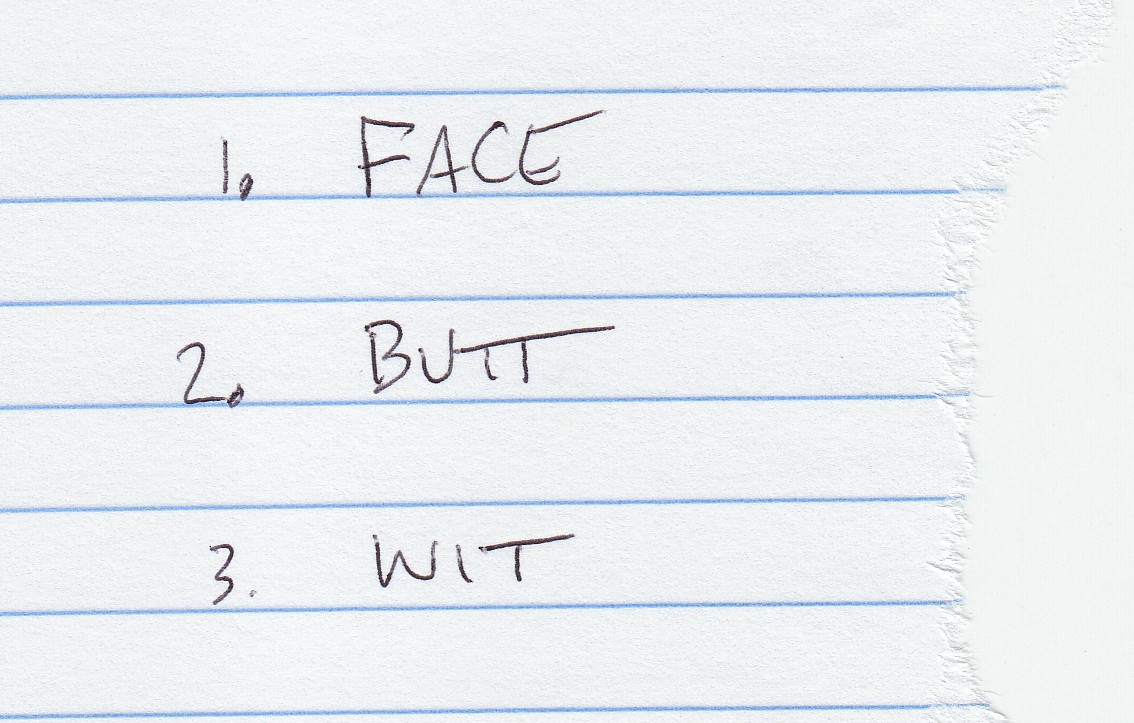 1. FACE
2. BUTT
3. WIT